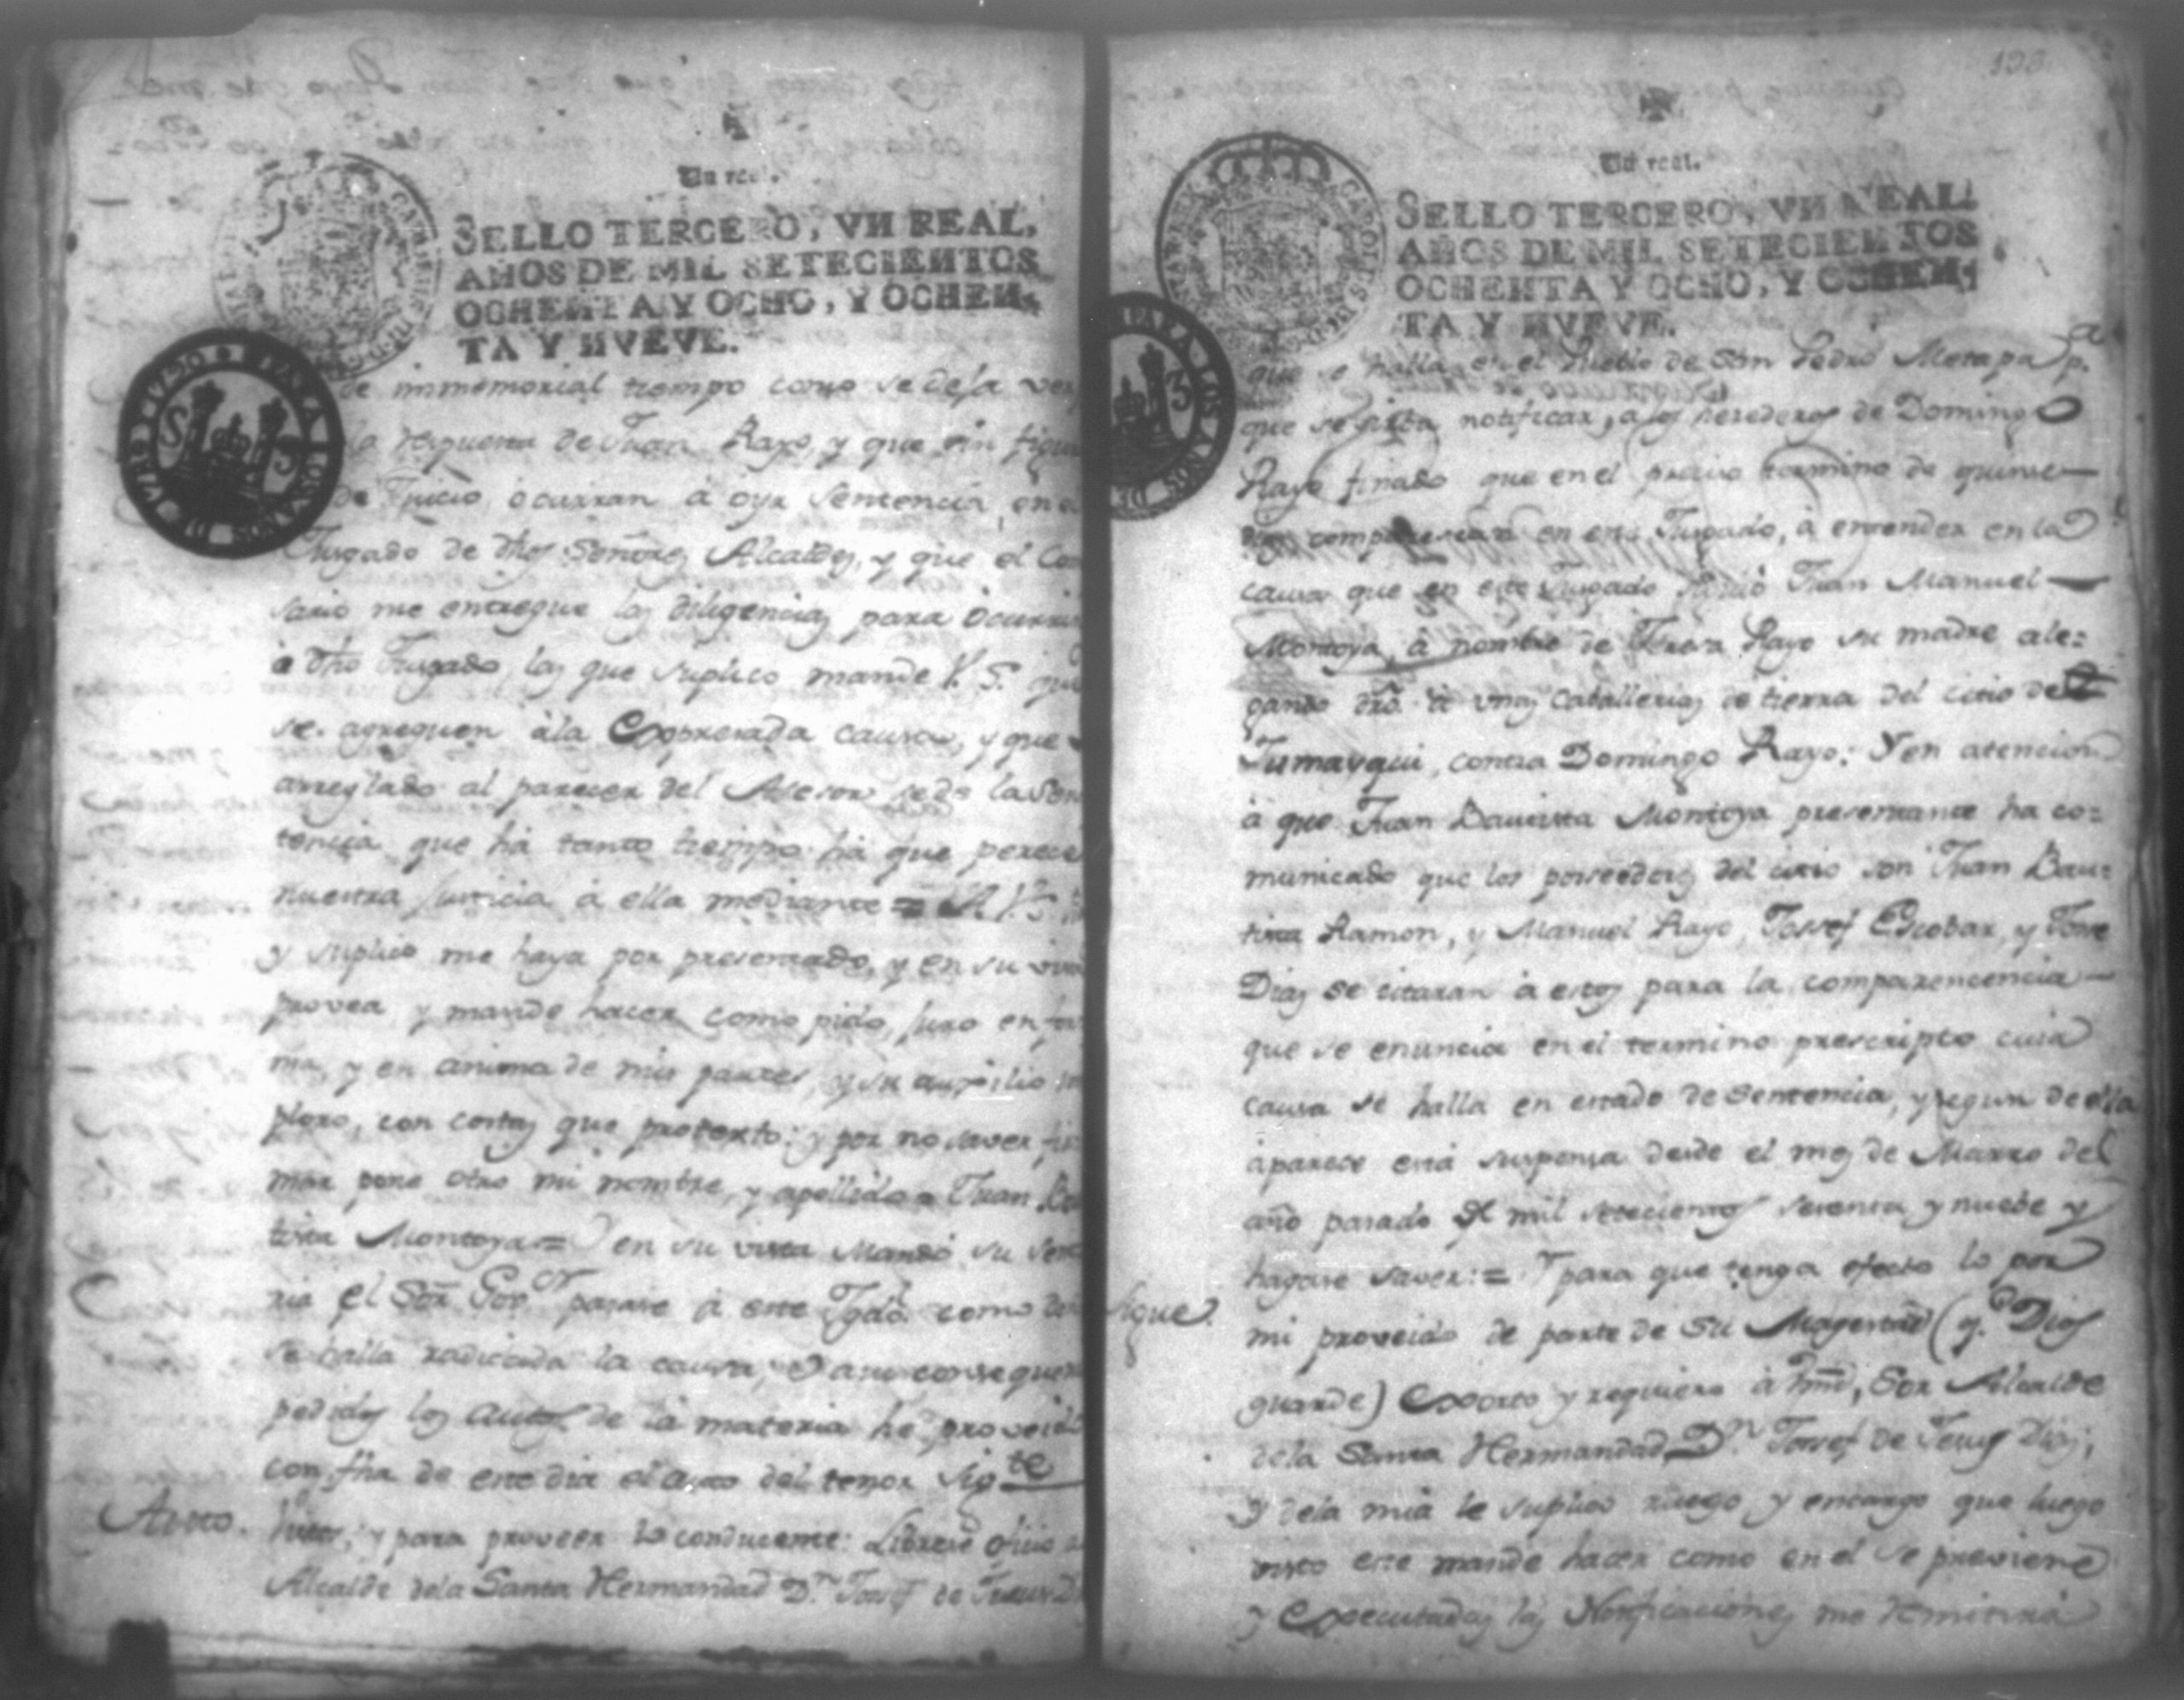 Un real.
SELLO TERCERO, VN REAL,
AÑOS DE MIL SETECIENTOS
OCHENTA Y OCHO, Y OCHEN-
TA Y NVEVE.
PARA LOS AÑOS DE 1790 Y 1791
S 3
de immemorial tiempo como se deja ver
la respuesta de Juan Rayo, y que sin figura
de Juicio, ocurran á oyr Sentencia, en el
Jusgado de dhos Señores Alcaldes, y que el
sario me entregue las diligencias para ocurrir
á dho Jusgado, las que suplico mande V. S. que
se agreguen ála Expresada causa, y que
arreglado al parecer del Asesor se dé la Sen
tencia que há tanto tiempo há que perece
nuestra Justicia á ella mediante = A V. S.
y suplico me haya por presentado, y en su vista
provea y mande hacer como pido, Juro en for
ma, y en anima de mis partes, y su auxilio im
ploro, con costas que protexto: y por no saver fir
mar pone otro mi nombre, y apellido = Juan Bau
tista Montoya = Y en su vista Mandó su Seño
ria el Sor. Gov.or pasase á este Jgdo. como
se halla radicada la causa, Y a su
pedidos los autos de la materia he proveido
con fha de este dia el auto del tenor sig.te
Auto. Vistos; y para proveer lo conducente: Librese oficio a
Alcalde dela Santa Hermandad D.n Josef de Jesus
193
Un real.
SELLO TERCERO, VN REAL,
AÑOS DE MIL SETECIENTOS
OCHENTA Y OCHO, Y OCHEN-
TA Y NVEVE.
PARA LOS AÑOS DE
3
que se halla en el Pueblo de Sán Pedro Metapa p.a
que se sirba notificar, a los herederos de Domingo
Rayo finado que en el preciso termino de quinse
dias comparescan en este Jusgado, á entender en la
causa que en este Jusgado siguió Juan Manuel
Montoya, á nombre de Teresa Rayo su madre ale=
gando dro. á unas Caballerias de tierra del citio de
contra Domingo Rayo: Y en atencion
á que Juan Bautista Montoya presentante ha co=
municado que los poseedores del citio son Juan Bau=
tista Ramon, y Manuel Rayo, Josef Escobar, y Jose
Dias se citaran á estos para la comparencencia
que se enuncia en el termino prescripto cuia
causa se halla en estado de Sentencia, y segun de ella
aparece está suspensa desde el mes de Marzo del
año pasado de mil setecientos setenta y nuebe y
hagase saver: = Y para que tenga efecto lo por
sigue. mi proveido de parte de Su Magestad (q. Dios
guarde) Exorto y requiero á Vmd, Sor Alcalde
dela Santa Hermandad D.n Josef de Jesus Dias;
Y dela mia le suplico ruego y encargo que luego
visto este mande hacer como en el se previene
y Executadas las Notificaciones me remitirá